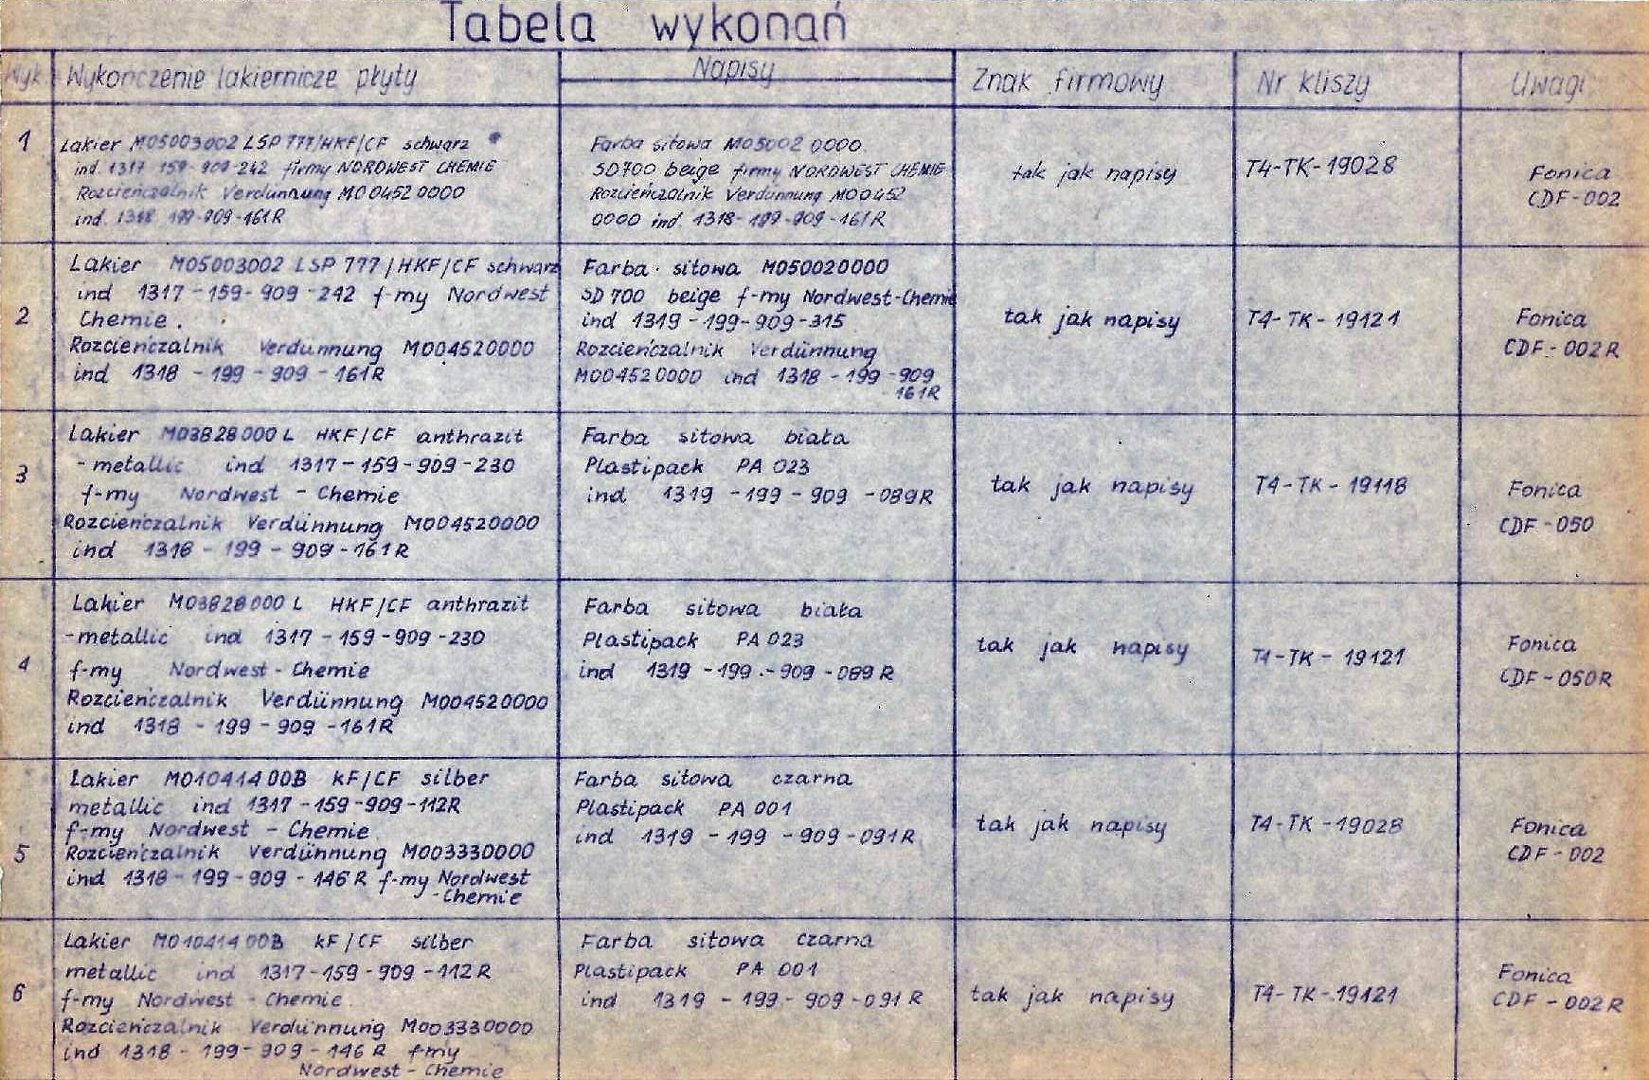 Tabela wykonań
Wyk
Wykończenie lakiernicze płyty
Napisy
Znak firmowy
Nr kliszy
Uwagi
1
Lakier M05003002 LSP 777/HKF/CF schwarz
ind. 1317-159-909-242 firmy NORDWEST CHEMIE
Rozcieńczalnik Verdünnung M00452 0000
ind. 1318 199-909-161R
Farba sitowa M05002 0000
SD700 beige firmy NORDWEST CHEMIE
Rozcieńczalnik Verdünnung M00452
0000 ind 1318-199-909-161R
tak jak napisy
T4-TK-19028
Fonica
CDF-002
2
Lakier M05003002 LSP 777/HKF/CF schwarz
ind 1317-159-909-242 f-my Nordwest
Chemie.
Rozcieńczalnik Verdünnung M004520000
ind 1318 - 199 - 909 - 161R
Farba sitowa M050020000
SD 700 beige f-my Nordwest-Chemie
ind 1319 - 199-909-315
Rozcieńczalnik Verdünnung
M004520000 ind 1318 - 199 - 909
161R
tak jak napisy
T4-TK-19121
Fonica
CDF-002R
3
Lakier M03828000L HKF/CF anthrazit
-metallic ind 1317-159-909-230
f-my Nordwest - Chemie
Rozcieńczalnik Verdünnung M004520000
ind 1318 - 199 - 909 - 161R
Farba sitowa biała
Plastipack PA 023
ind 1319 - 199 - 909 - 089R
tak jak napisy
T4-TK-19118
Fonica
CDF-050
4
Lakier M03828000L HKF/CF anthrazit
-metallic ind 1317 - 159-909-230
f-my Nordwest - Chemie
Rozcieńczalnik Verdünnung M004520000
ind 1318 - 199 - 909 - 161R
Farba sitowa biała
Plastipack PA 023
ind 1319 - 199 - 909 - 089R
tak jak napisy
T4-TK-19121
Fonica
CDF-050R
5
Lakier M01041400B KF/CF silber
metallic ind 1317-159-909-112R
f-my Nordwest - Chemie
Rozcieńczalnik Verdünnung M003330000
ind 1318-199-909 - 146R f-my Nordwest
-Chemie
Farba sitowa czarna
Plastipack PA 001
ind 1319 - 199 - 909-091R
tak jak napisy
T4-TK-19028
Fonica
CDF-002
6
Lakier M01041400B KF/CF silber
metallic ind 1317-159-909-112R
f-my Nordwest - Chemie
Rozcieńczalnik Verdünnung M003330000
ind 1318 - 199-909-146R f-my
Nordwest-Chemie
Farba sitowa czarna
Plastipack PA 001
ind 1319 - 199 - 909-091R
tak jak napisy
T4-TK-19121
Fonica
CDF-002R